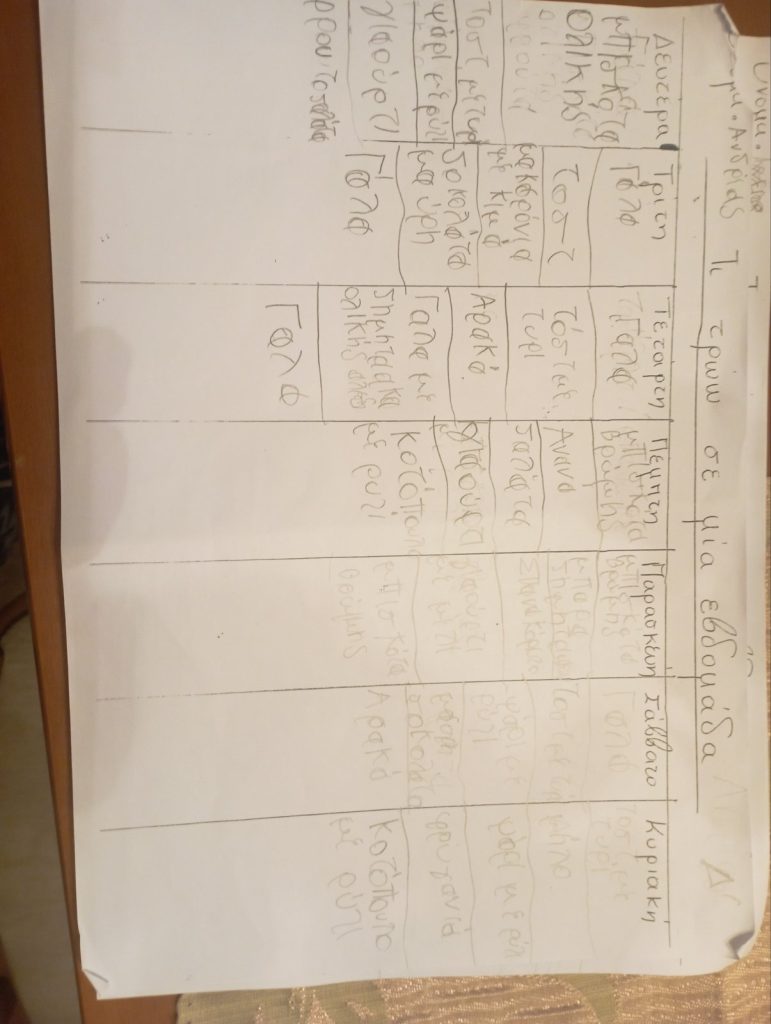 Ανδρέας
Τι τρώω σε μία εβδομάδα
Δευτέρα
μπισκότα
ολικής
φρούτα
τοστ με τυρί
ψάρι με ρύζι
γιαούρτι
φρουτοσαλάτα
Τρίτη
Γάλα
τοστ
μακαρόνια
με κιμά
σοκολάτα
μαύρη
Γάλα
Τετάρτη
Γάλα
τόστ με
τυρί
Αρακά
Γάλα με
δημητριακά
ολικής
Γάλα
Πέμπτη
μπισκότα
βρώμης
Ανανά
σαλάτα
γιαούρτι
κοτόπουλο
με ρύζι
Παρασκευή
μπισκότα
βρώμης
μπάρα
δημητριακών
γιαούρτι
με μέλι
μπισκότα
βρώμης
Σάββατο
Γάλα
Τοστ με τυρί
ψάρι με
ρύζι
σοκολάτα
Αρακά
Κυριακή
τοστ με
τυρί
μήλο
ψάρι με ρύζι
φρυγανιά
κοτόπουλο
με ρύζι